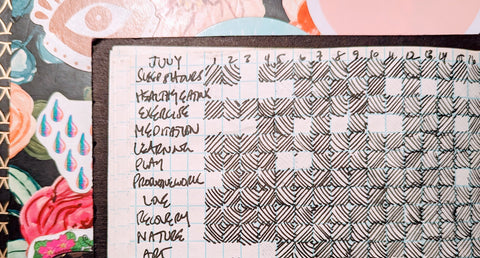 JULY 1 2 3 4 5 6 7 8 9 10 11 12 13 14 15 16
SLEEP 8 HOURS
HEALTHY EATING
EXERCISE
MEDITATION
LEARNING
PLAY
PRODUCTIVE WORK
LOVE
RECOVERY
NATURE
ART